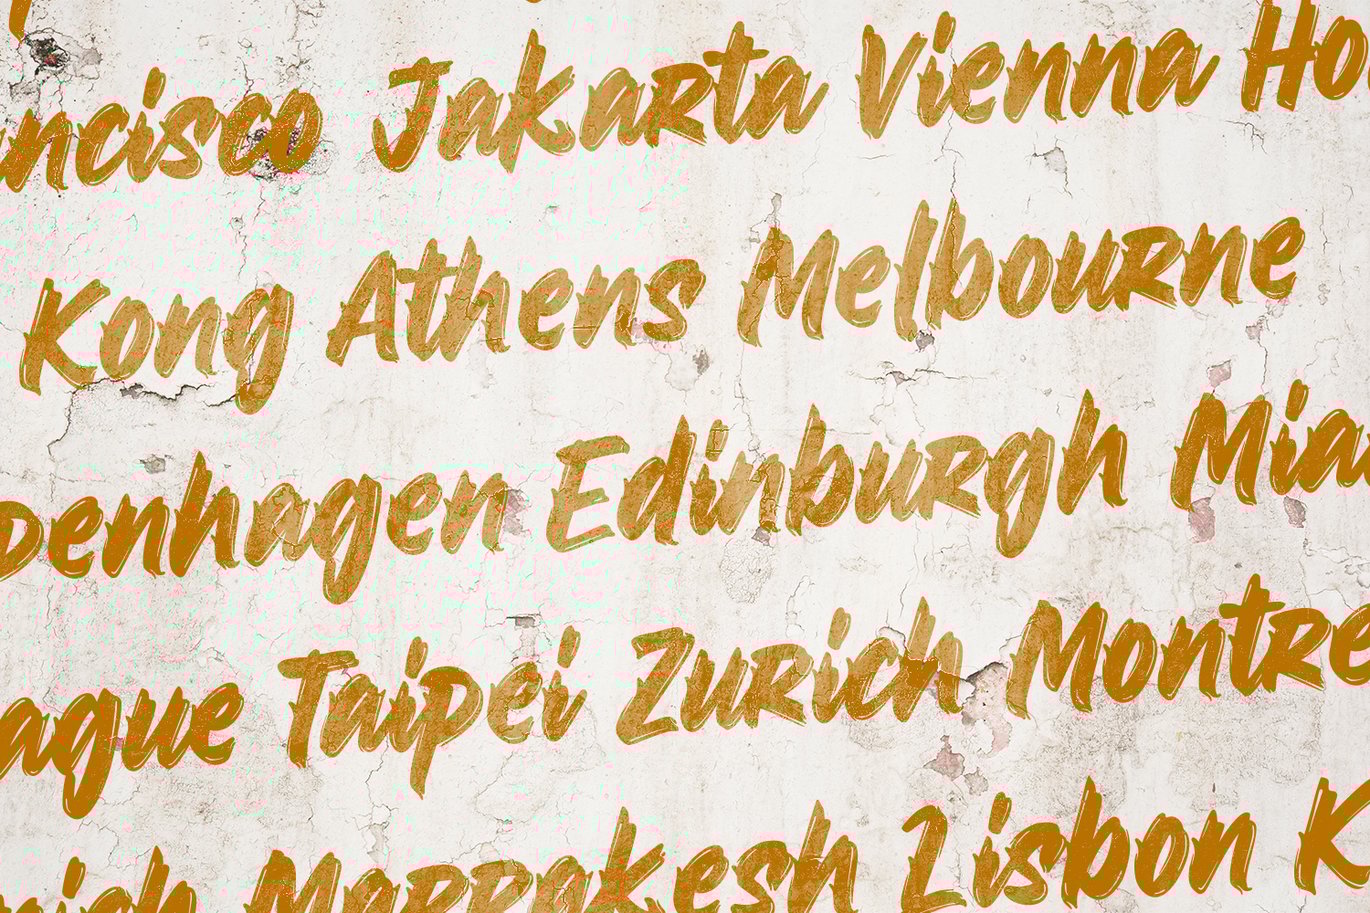 ncisco Jakarta Vienna Ho
Kong Athens Melbourne
penhagen Edinburgh Mia
ague Taipei Zurich Montre
nich Marrakesh Lisbon K